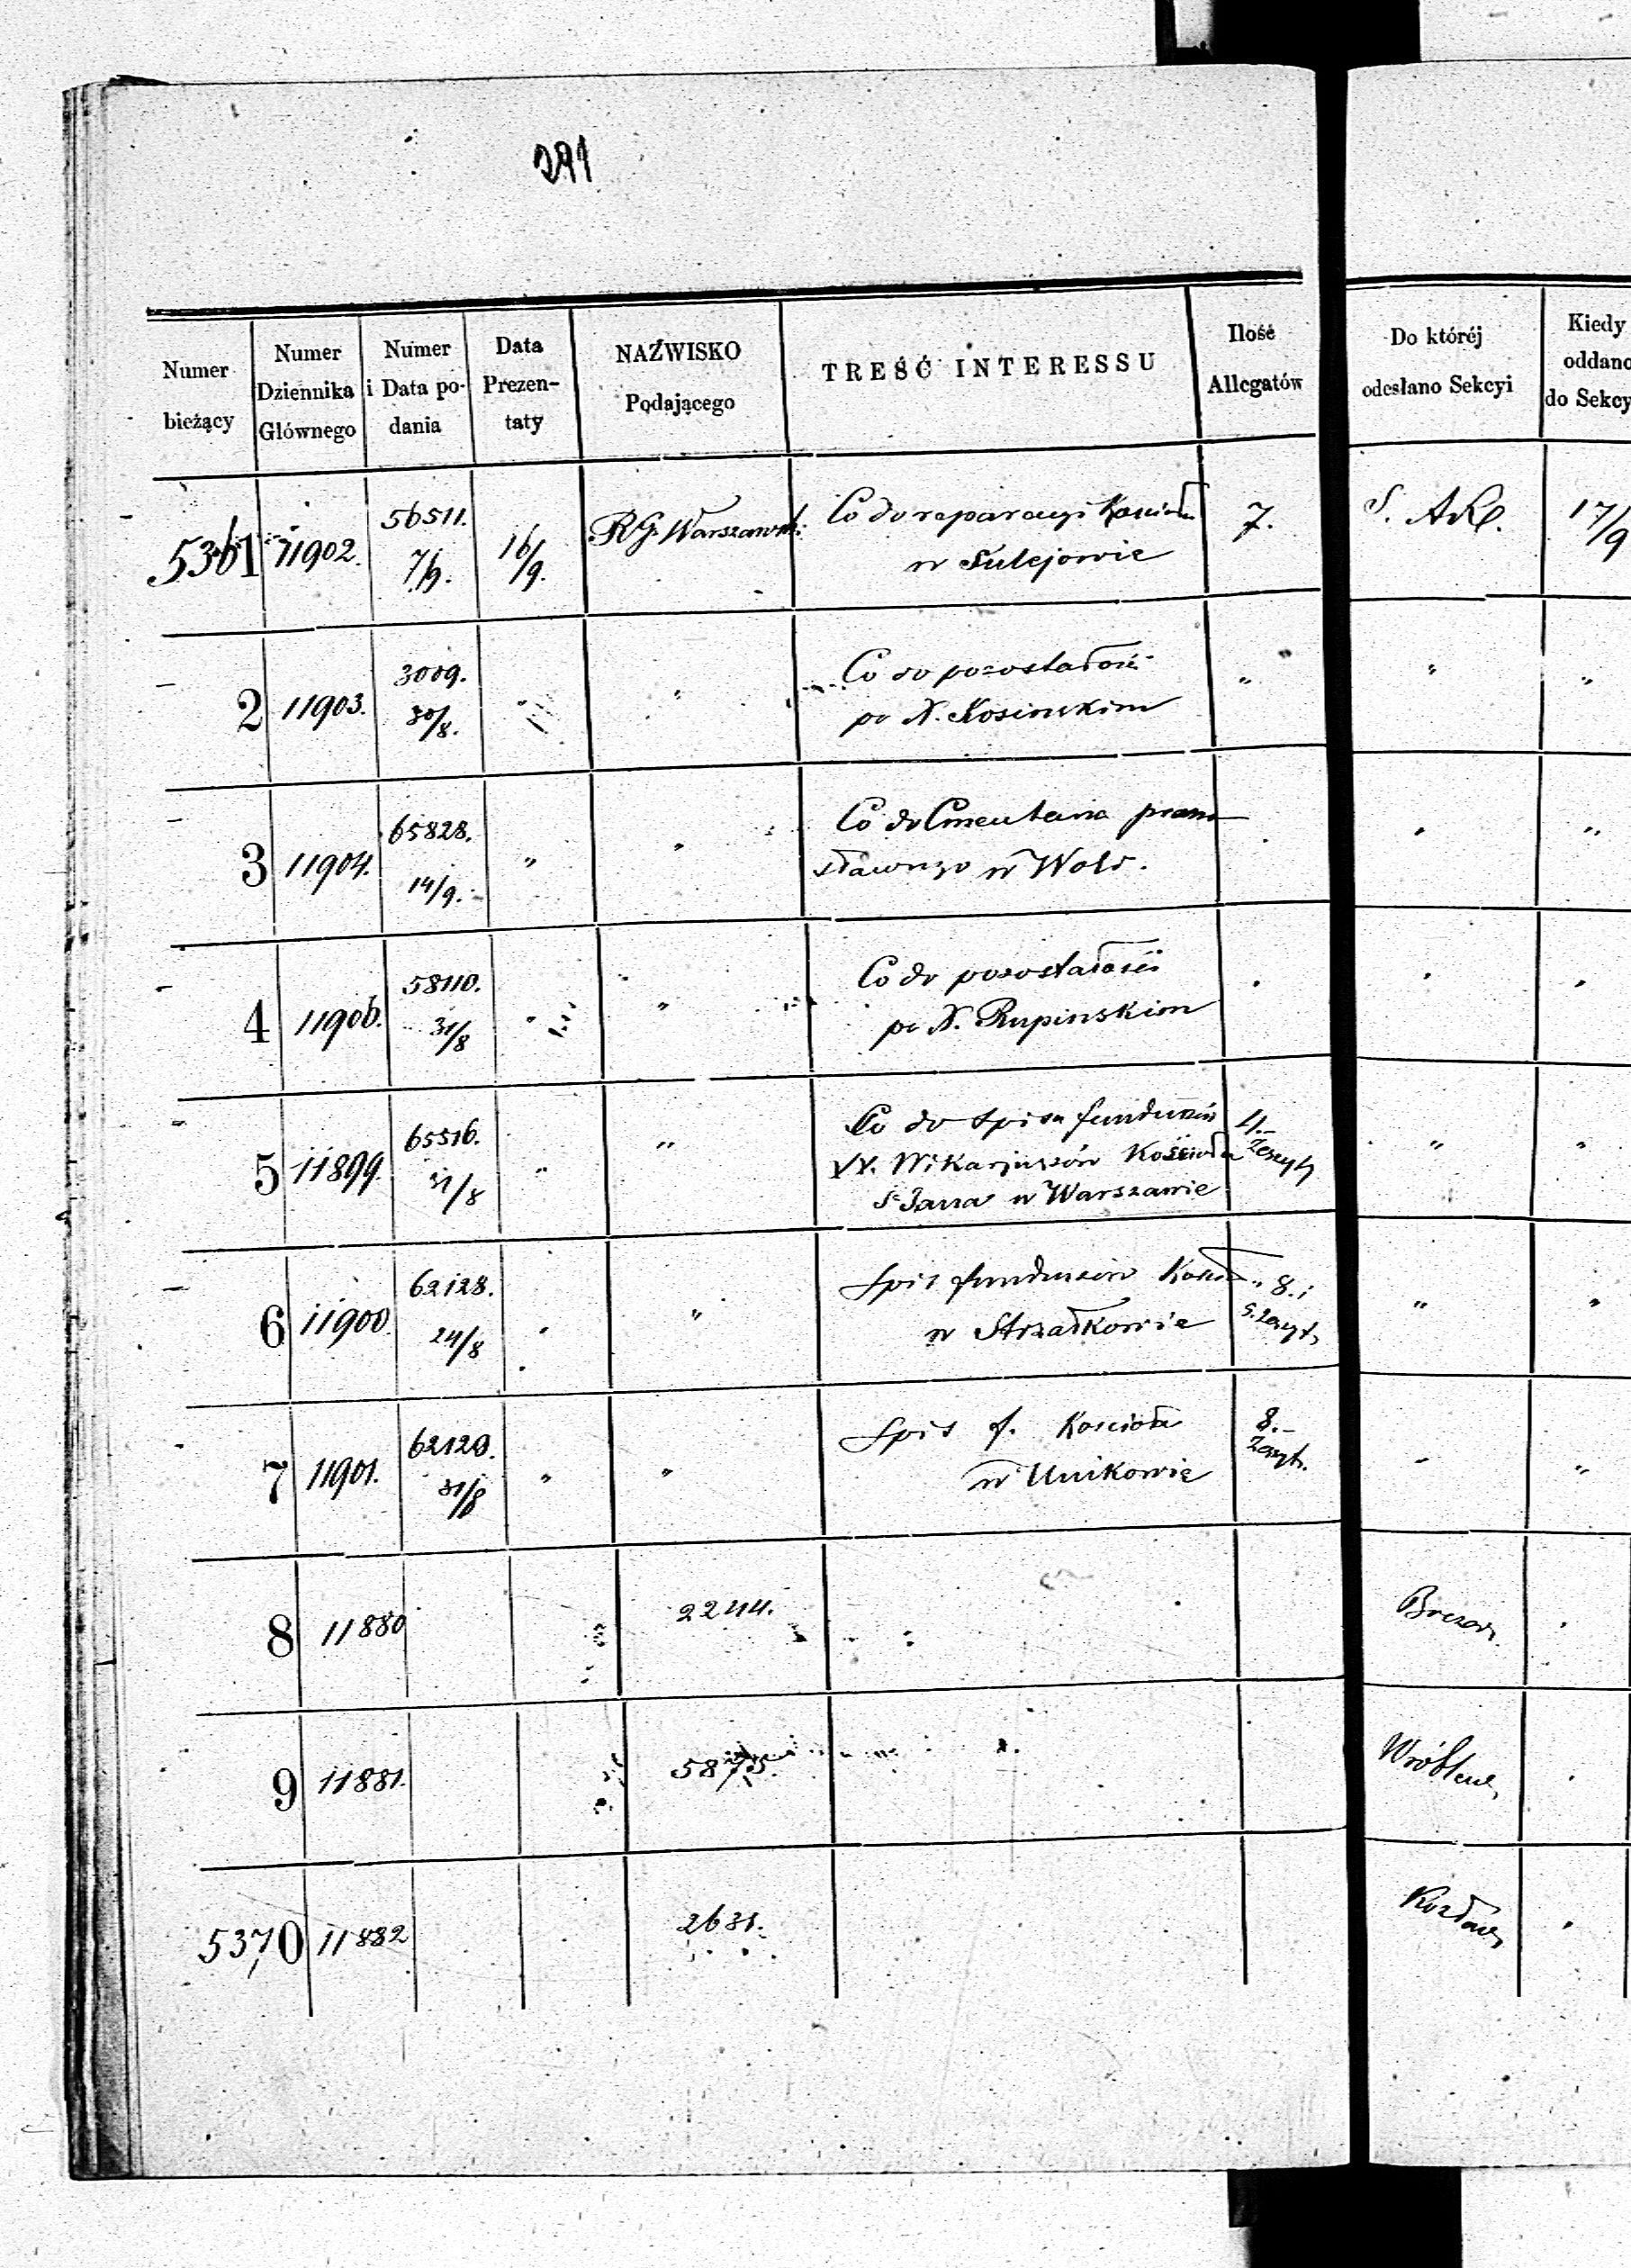 291
Numer bieżący | Numer Dziennika Głównego | Numer i Data podania | Data Prezentaty | NAZWISKO Podającego | TREŚĆ INTERESSU | Ilość Allegatów | Do któréj odesłano Sekcyi | Kiedy oddano do Sekcy
5361 | 11902. | 56511. 7/9. | 16/9. | RG. Warszawski | Co do reparacyi Kościoła | 7. | S. AKl. | 17/9
w Sulejowie
2 | 11903. | 3009. 30/8. | " | " | Co do pozostałości | " | " | "
po X. Kosinskim
3 | 11904. | 65828. 14/9. | " | " | Co do Cmentarza prawo-
sławnego w Woli.
4 | 11906. | 58110. 31/8 | " | " | Co do pozostałości
po X. Rupinskim
5 | 11899. | 65516. 31/8 | " | " | Co do Spisu funduszów | 4.- Zeszyty | " | "
XX. Wikarjuszów Kościoła
S. Jana w Warszawie
6 | 11900. | 62128. 24/8 | " | " | Spis funduszów Kościoła | 8. i 5. Zeszyt. | " | "
w Strzałkowie
7 | 11901. | 62120. 31/8 | " | " | Spis f. Kościoła | 8.- Zeszyt. | " | "
w Unikowie
8 | 11880 | 2244.
9 | 11881. | 5875.
5370 | 11882 | 2631.